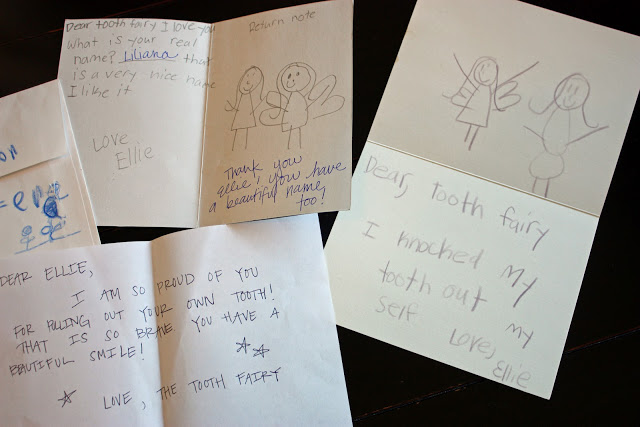 Dear tooth fairy I love you
What is your real
name? Liliana that
is a very nice name
I like it
Love
Ellie
Return note
Thank you
Ellie, you have
a beautiful name,
too!
Dear, tooth fairy
I knocked my
tooth out my
self
Love,
Ellie
DEAR ELLIE,
I AM SO PROUD OF YOU
FOR PULLING OUT YOUR OWN TOOTH!
THAT IS SO BRAVE YOU HAVE A
BEAUTIFUL SMILE!
LOVE, THE TOOTH FAIRY
on